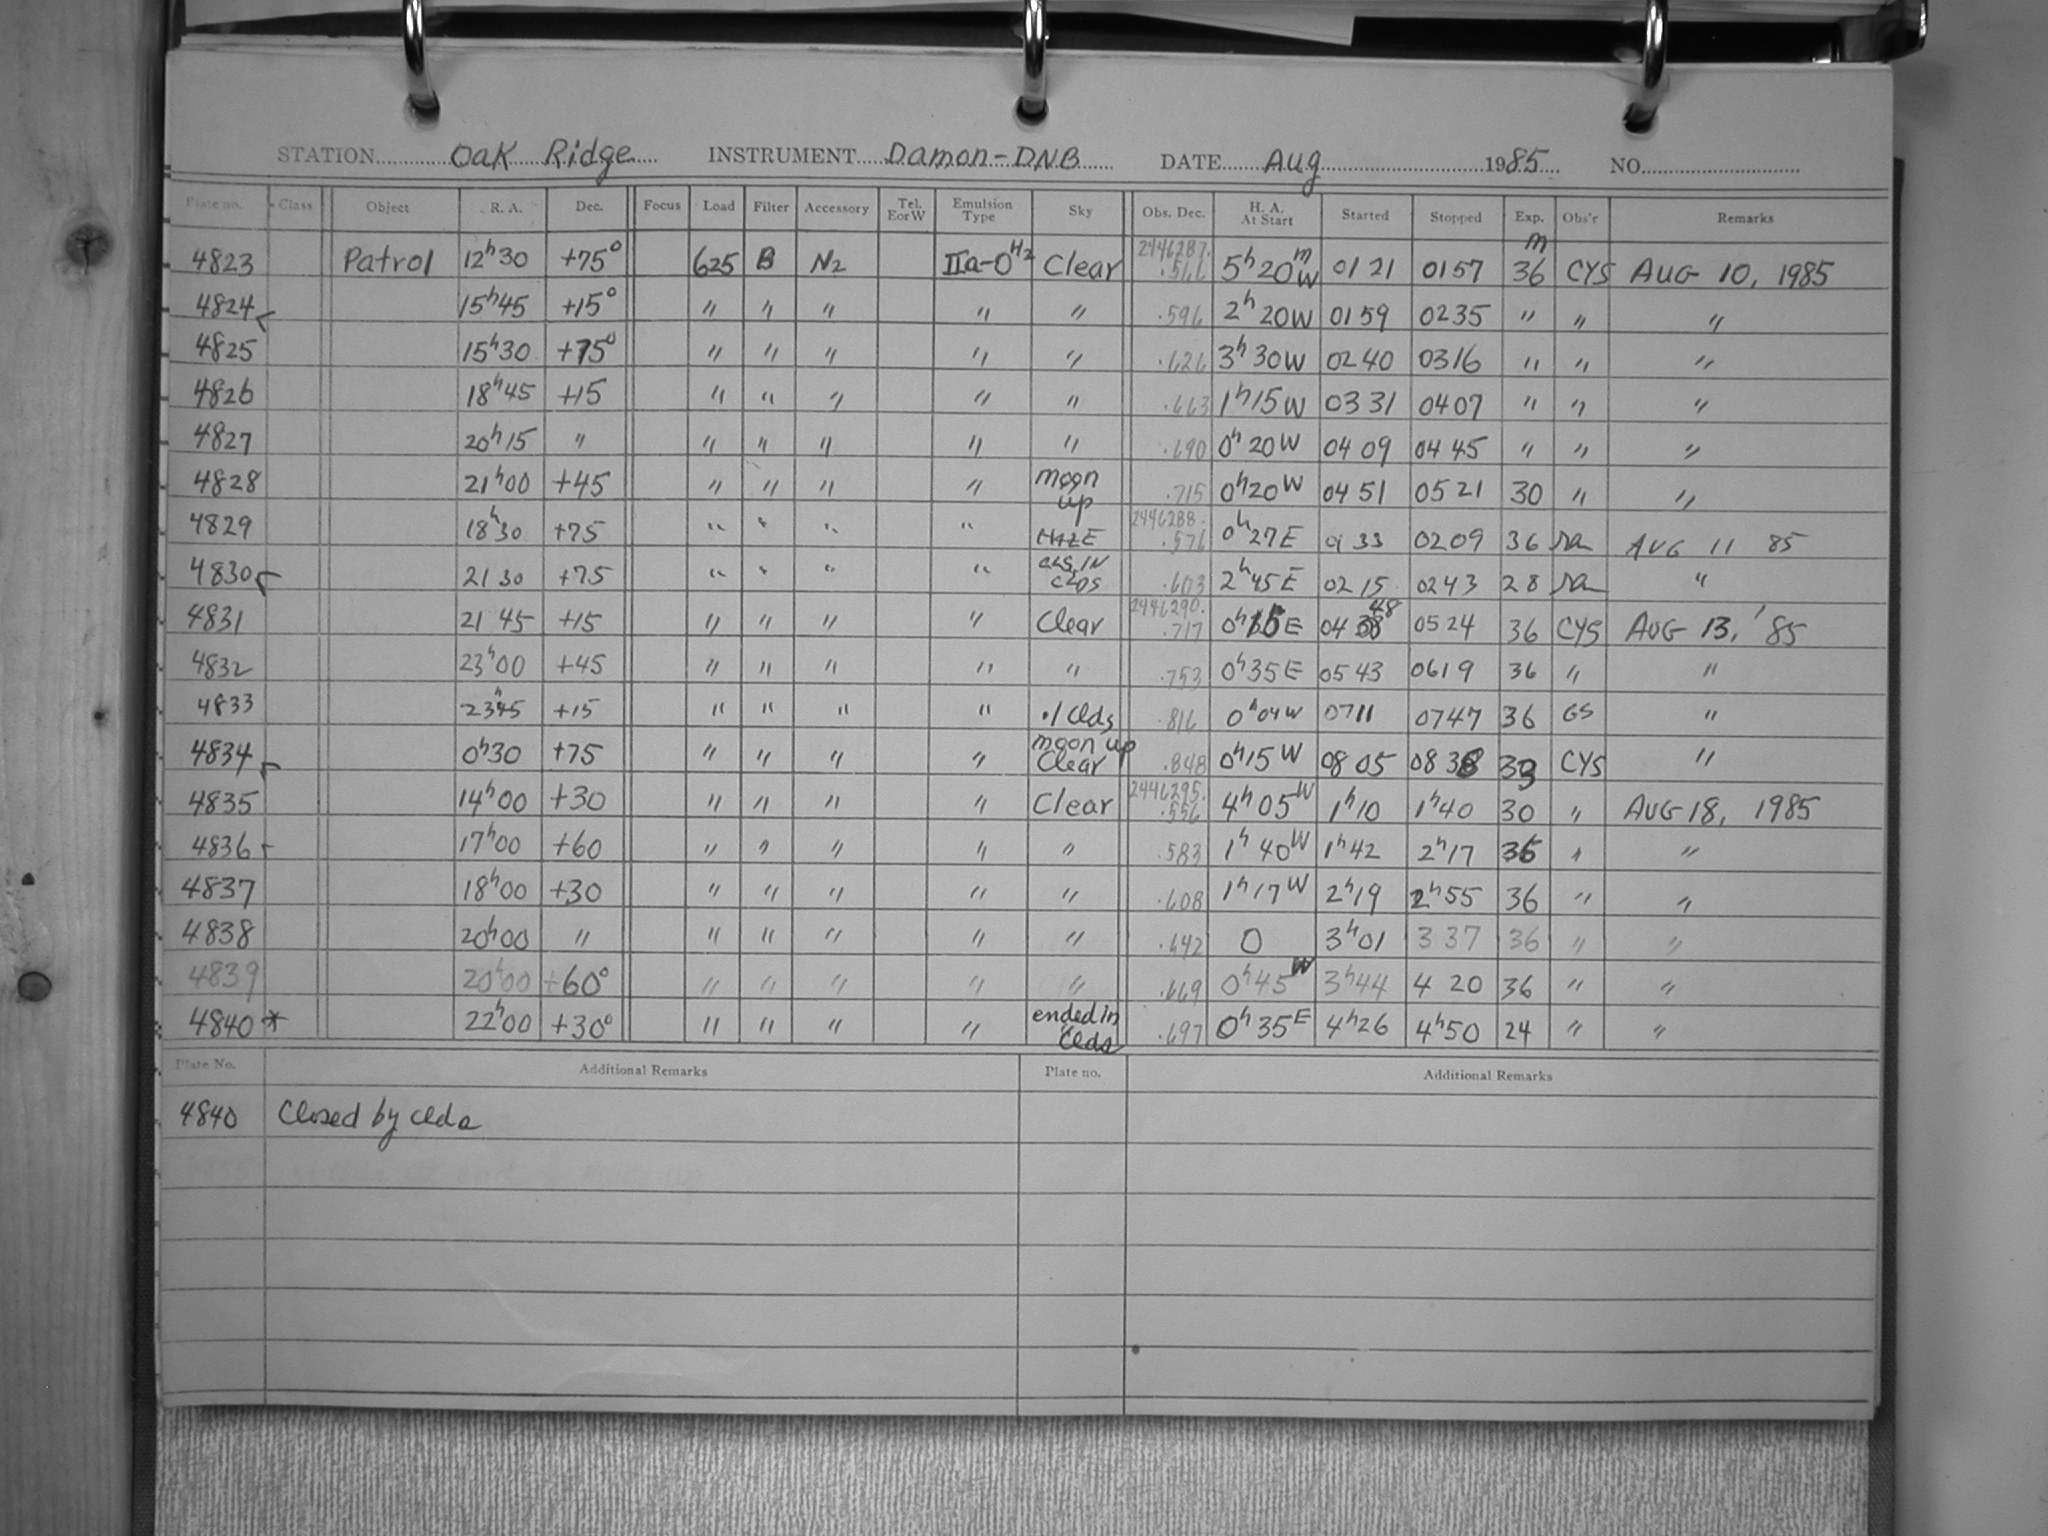 STATION Oak Ridge INSTRUMENT Damon-DNB DATE Aug 1985 NO.
Plate no. Class Object R. A. Dec. Focus Load Filter Accessory Tel. E or W Emulsion Type Sky Obs. Dec. H. A. At Start Started Stopped Exp. Obs'r Remarks
4823 Patrol 12h30 +75° 625 B N2 IIa-O H2 Clear 2446287. .566 5h20m W 01 21 01 57 36m CYS AUG 10, 1985
4824 15h45 +15° " " " " " .596 2h20W 01 59 02 35 " " "
4825 15h30 +75° " " " " " .626 3h30W 02 40 03 16 " " "
4826 18h45 +15 " " " " " .663 1h15W 03 31 04 07 " " "
4827 20h15 " " " " " " .690 0h20W 04 09 04 45 " " "
4828 21h00 +45 " " " " moon up .715 0h20W 04 51 05 21 30 " "
4829 18h30 +75 " " " " HAZE 2446288. .576 0h27E 01 33 02 09 36 AUG 11 85
4830 21 30 +75 " " " " CLDS .603 2h45E 02 15 02 43 28 "
4831 21 45 +15 " " " " Clear 2446290. .717 0h15E 04 48 05 24 36 CYS AUG 13, '85
4832 23h00 +45 " " " " " .753 0h35E 05 43 06 19 36 " "
4833 23h45 +15 " " " " .1 Clds .816 0h04W 07 11 07 47 36 GS "
4834 0h30 +75 " " " " moon up Clear .848 0h15W 08 05 08 38 33 CYS "
4835 14h00 +30 " " " " Clear 2446295. .556 4h05W 1h10 1h40 30 " AUG 18, 1985
4836 17h00 +60 " " " " " .583 1h40W 1h42 2h17 35 " "
4837 18h00 +30 " " " " " .608 1h17W 2h19 2h55 36 " "
4838 20h00 " " " " " " .642 0 3h01 3 37 36 " "
4839 20h00 +60° " " " " " .669 0h45W 3h44 4 20 36 " "
4840 * 22h00 +30° " " " " ended in Clds .697 0h35E 4h26 4h50 24 " "
Plate No. Additional Remarks Plate no. Additional Remarks
4840 Closed by clds